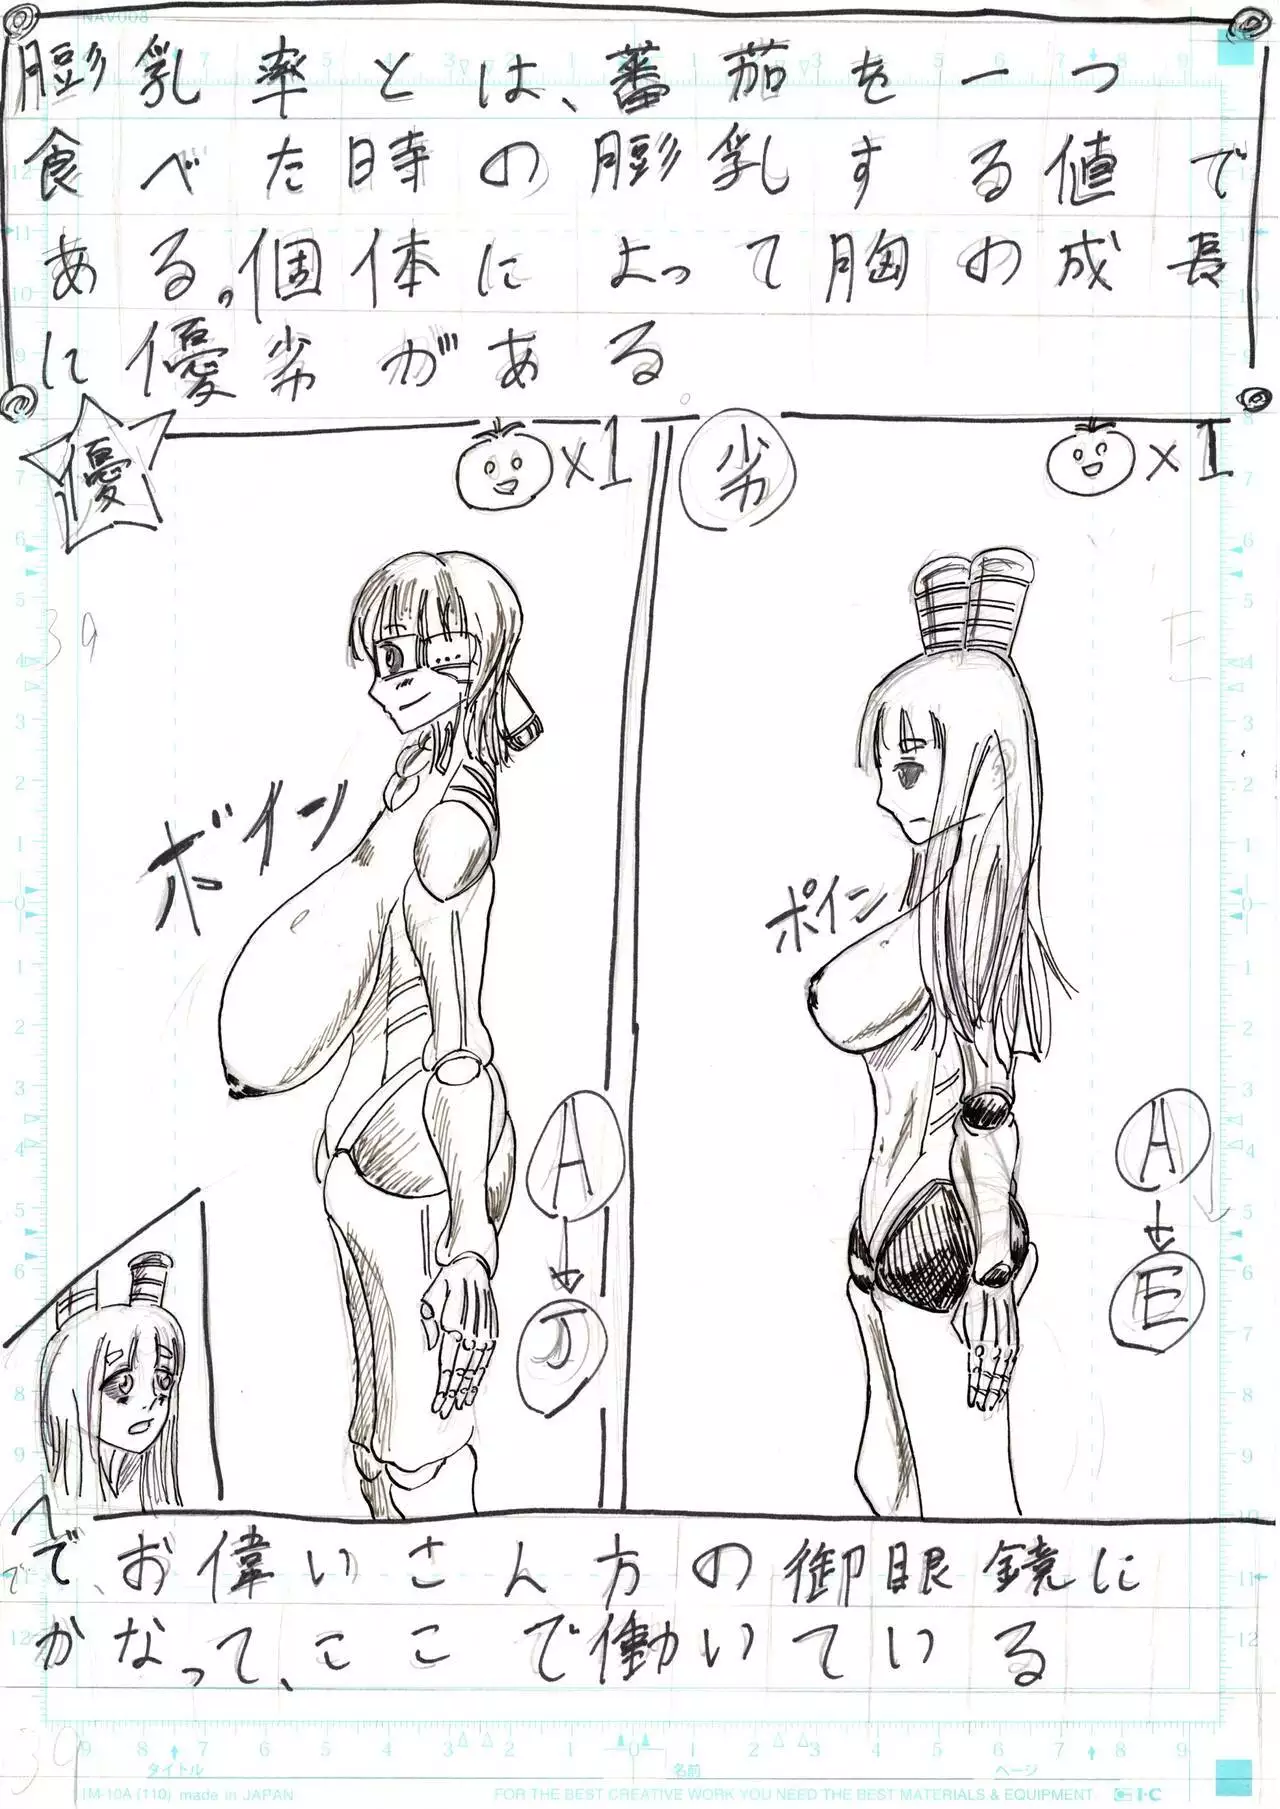 NAV008
膨乳率とは、蕃茄を一つ
食べた時の膨乳する値で
ある。個体によって胸の成長
に優劣がある。
優
×1
劣
×1
ボイン
ポイン
A
J
A
E
で、お偉いさん方の御眼鏡に
かなって、ここで働いている
39
タイトル
名前
ページ
IM-10A (110) made in JAPAN
FOR THE BEST CREATIVE WORK YOU NEED THE BEST MATERIALS & EQUIPMENT
I・C